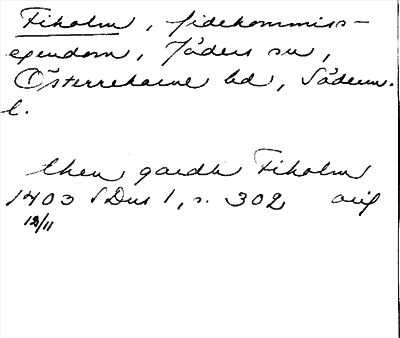 Fiholm, fideikommiss-
egendom, Jäders sn,
Österrekarne hd, Söderm.
l.
then gardh Fiholm
1403 SDns 1, s. 302 orig
12/11